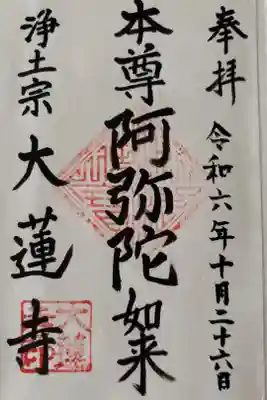 奉拝 令和六年十月二十六日
本尊 阿弥陀如来
浄土宗 大蓮寺